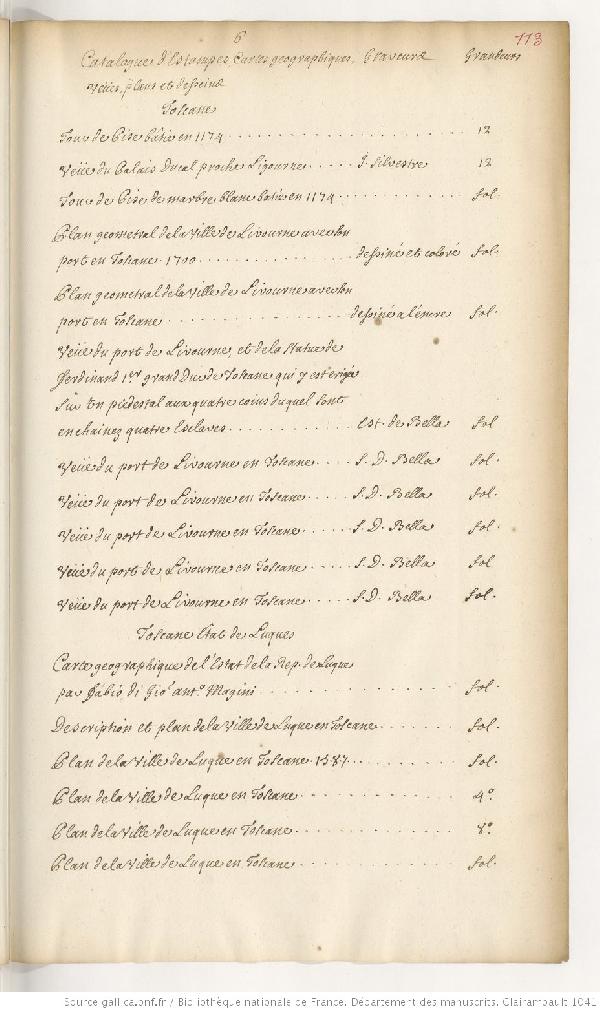 6
113
Catalogue d'Estampes, Cartes geographiques, Graveurs Grandeurs
Veües, plans et desseins
Toscane
Tour de Pise bâtie en 1174 12
Veüe du Palais Ducal proche Ligourne J. Silvestre 12
Tour de Pise de marbre blanc batie en 1174 fol.
Plan geometral de la Ville de Livourne avec son
port en Toscane. 1700 dessiné et coloré fol.
Plan geometral de la Ville de Livourne avec son
port en Toscane dessiné a l'encre fol.
Veüe du port de Livourne, et de la Statue de
Ferdinand 1er. grand Duc de Toscane qui y est erigée
sur un piédestal aux quatre coins duquel sont
enchainez quatre Esclaves Est. de Bella fol
Veüe du port de Livourne en Toscane S. D. Bella fol.
Veüe du port de Livourne en Toscane S. D. Bella fol.
Veüe du port de Livourne en Toscane S. D. Bella fol.
Veüe du port de Livourne en Toscane S. D. Bella fol
Veüe du port de Livourne en Toscane S. D. Bella fol.
Toscane Etat de Luques
Carte geographique de l'Estat de la Rep. de Luque
par Fabio di Gio. ant.o Magini fol.
Description et plan de la Ville de Luque en Toscane fol.
Plan de la Ville de Luque en Toscane. 1587 fol.
Plan de la Ville de Luque en Toscane 4.o
Plan de la Ville de Luque en Toscane 8.o
Plan de la Ville de Luque en Toscane fol.
Source gallica.bnf.fr / Bibliothèque nationale de France. Département des manuscrits. Clairambault 1041